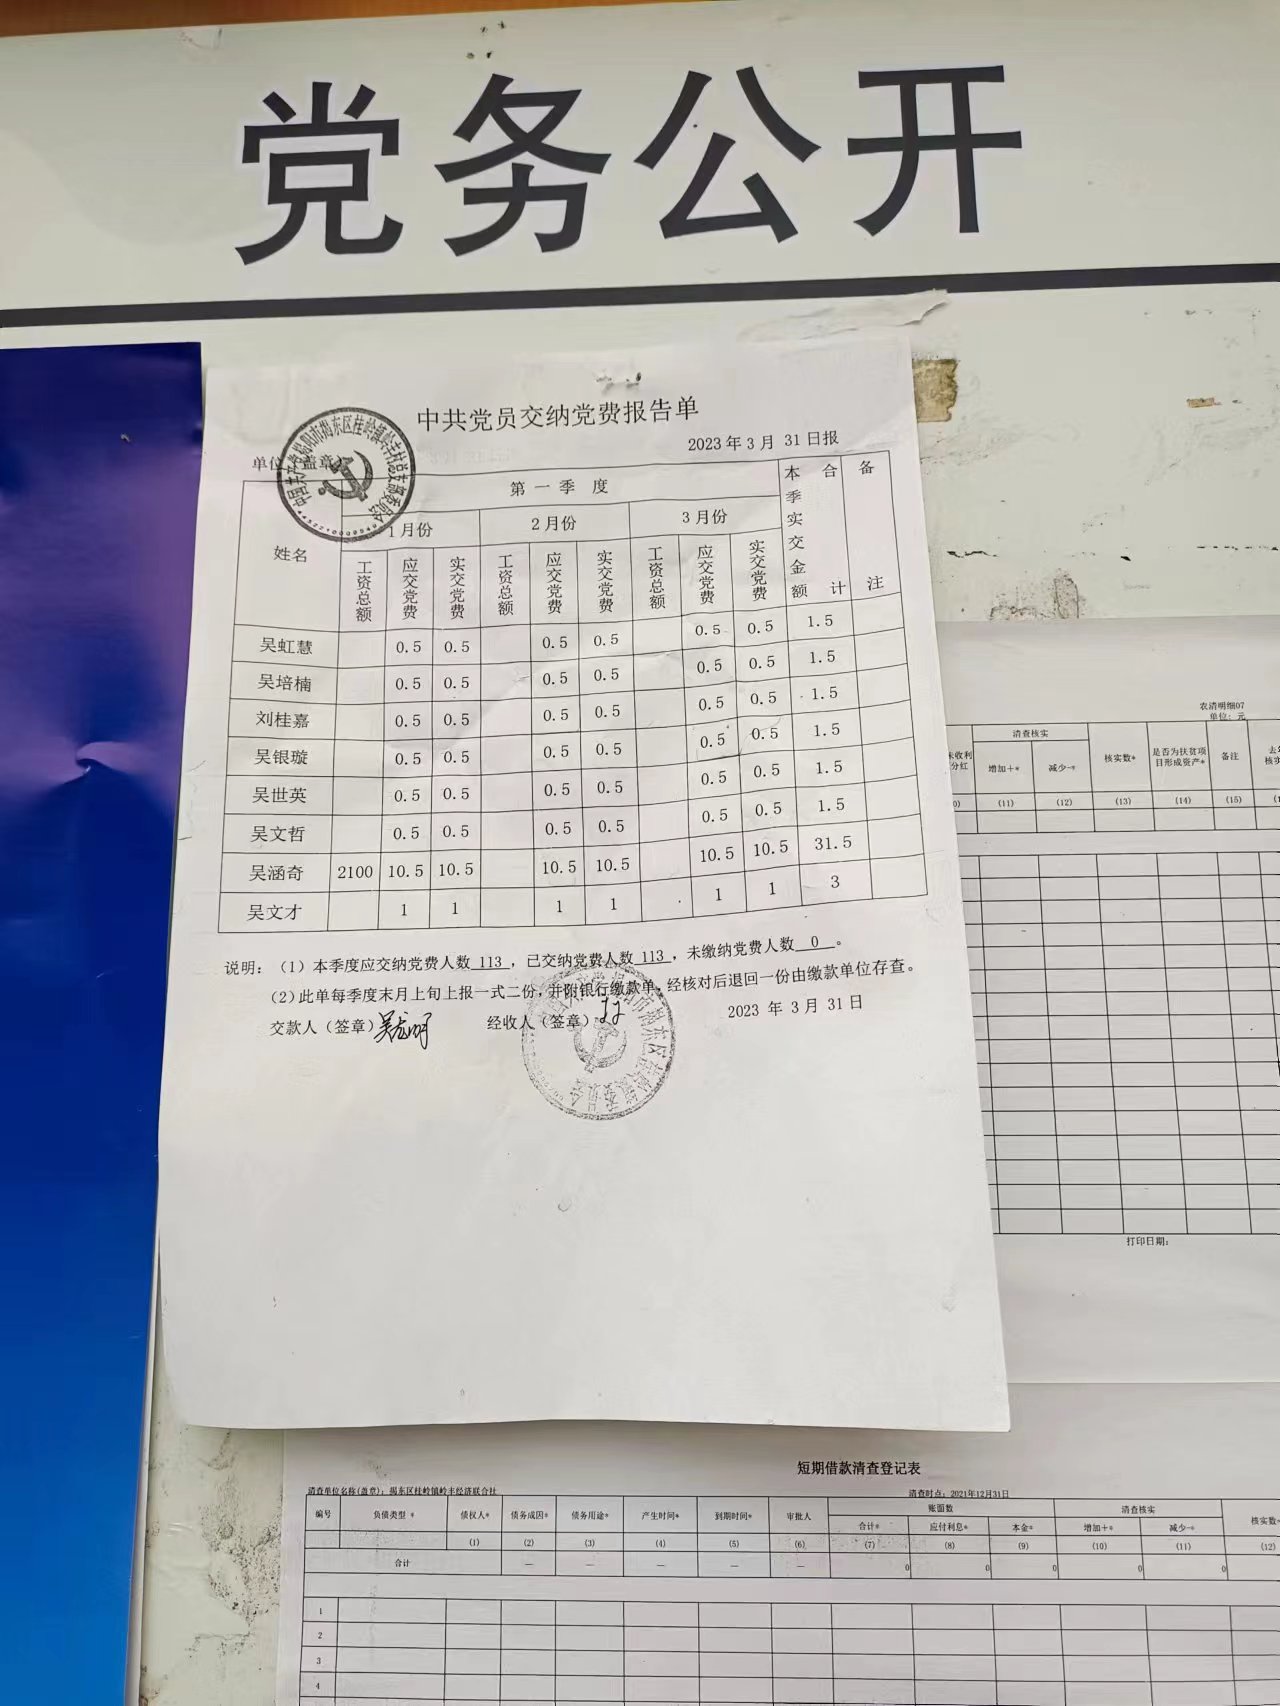 党务公开
中共党员交纳党费报告单
2023年3月 31日报
单位(盖章)
中国共产党揭阳市揭东区桂岭镇岭丰村总支部委员会
姓名 第一季度 本季实交金额 合计 备注
1月份 2月份 3月份
工资总额 应交党费 实交党费 工资总额 应交党费 实交党费 工资总额 应交党费 实交党费
吴虹慧 0.5 0.5 0.5 0.5 0.5 0.5 1.5
吴培楠 0.5 0.5 0.5 0.5 0.5 0.5 1.5
刘桂嘉 0.5 0.5 0.5 0.5 0.5 0.5 1.5
吴银璇 0.5 0.5 0.5 0.5 0.5 0.5 1.5
吴世英 0.5 0.5 0.5 0.5 0.5 0.5 1.5
吴文哲 0.5 0.5 0.5 0.5 0.5 0.5 1.5
吴涵奇 2100 10.5 10.5 10.5 10.5 10.5 10.5 31.5
吴文才 1 1 1 1 1 1 3
说明：（1）本季度应交纳党费人数 113 ，已交纳党费人数 113 ，未缴纳党费人数 0 。
（2）此单每季度末月上旬上报一式二份，并附银行缴款单，经核对后退回一份由缴款单位存查。
交款人（签章） 经收人（签章） 2023 年 3 月 31 日
农清明细07
单位：元
未收利 清查核实 核实数* 是否为扶贫项目形成资产* 备注
分红 增加+* 减少-*
(11) (12) (13) (14) (15)
打印日期：
短期借款清查登记表
清查单位名称(盖章)：揭东区桂岭镇岭丰经济联合社 清查时点：2021年12月31日
编号 负债类型* 债权人* 债务成因* 债务用途* 产生时间* 到期时间* 审批人 账面数 清查核实 核实数*
合计* 应付利息* 本金* 增加+* 减少-*
(1) (2) (3) (4) (5) (6) (7) (8) (9) (10) (11) (12)
合计 — — — — — 0 0 0 0 0
1
2
3
4